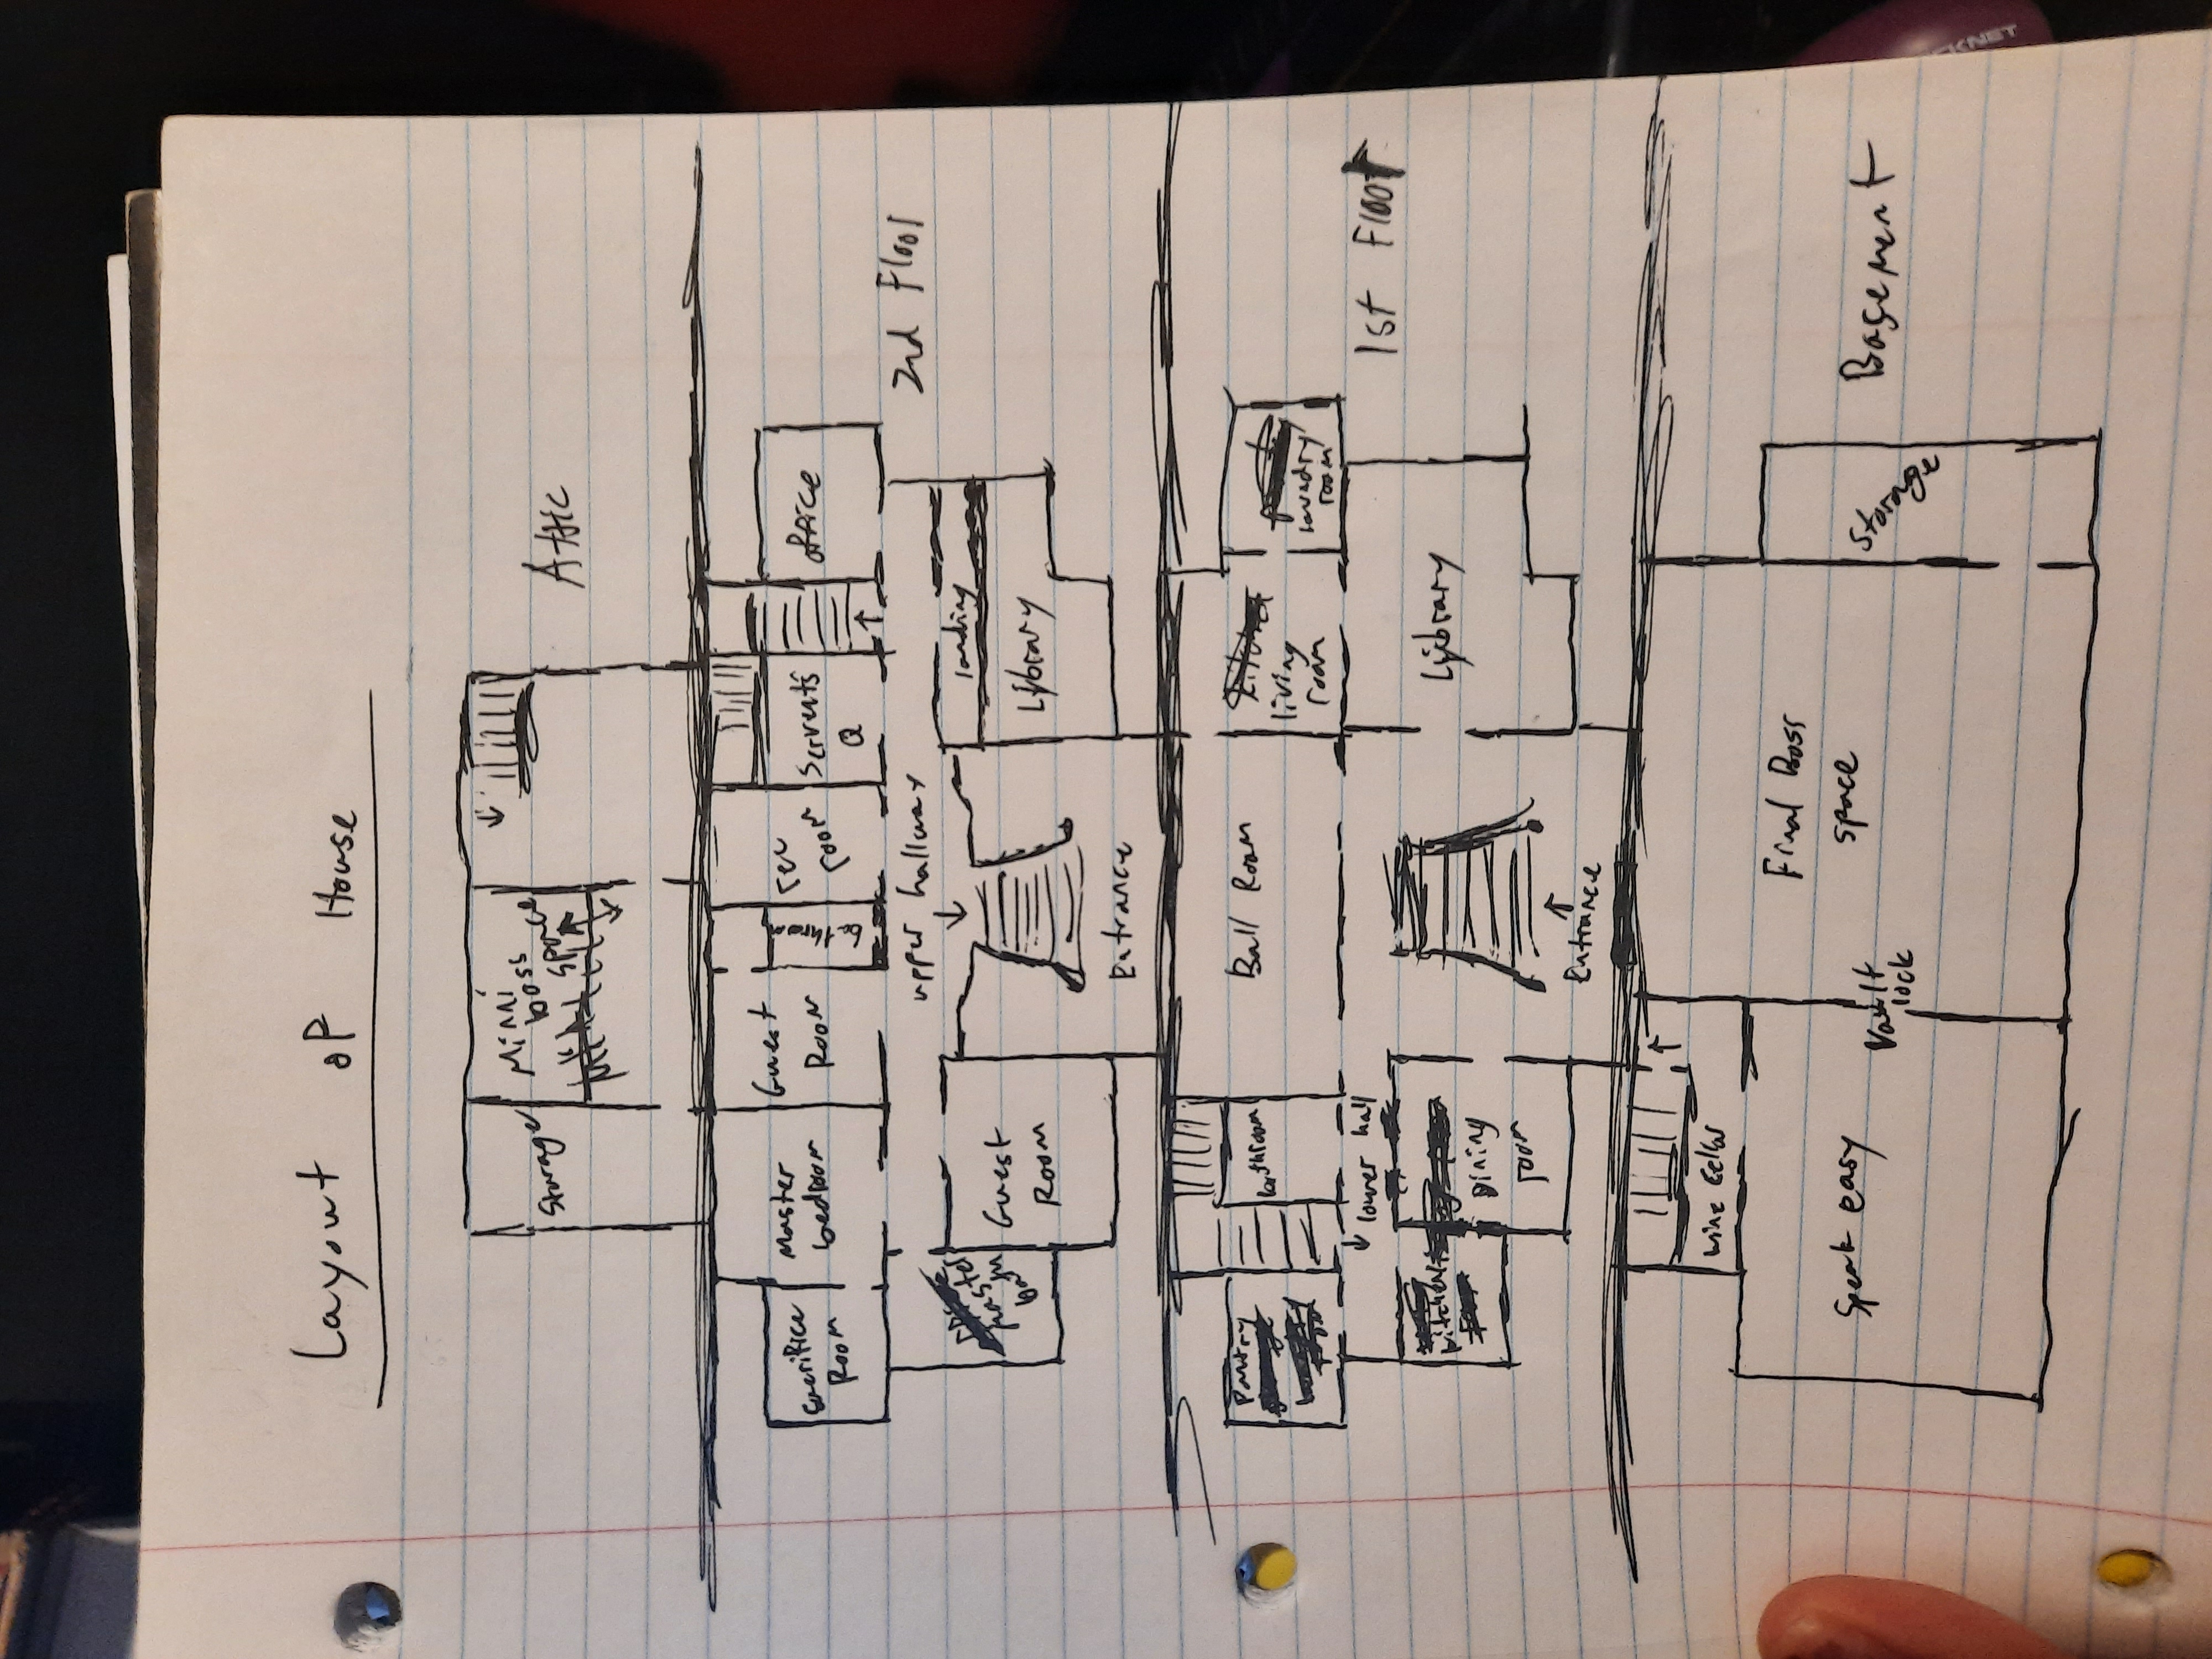 Layout of House
Storage
Minni
boss
space
Attic
Sacrifice
Room
Master
bedroom
Guest
Room
bathroom
rec
room
Servents
Q
office
upper hallway
2nd Floor
master
bath
Guest
Room
landing
Library
Entrance
Pantry
bathroom
Ball Room
living
room
laundry
room
lower hall
1st Floor
kitchen
Dining
room
Library
Entrance
wine Cellar
Speak easy
Vault
lock
Final Boss
space
Storage
Basement